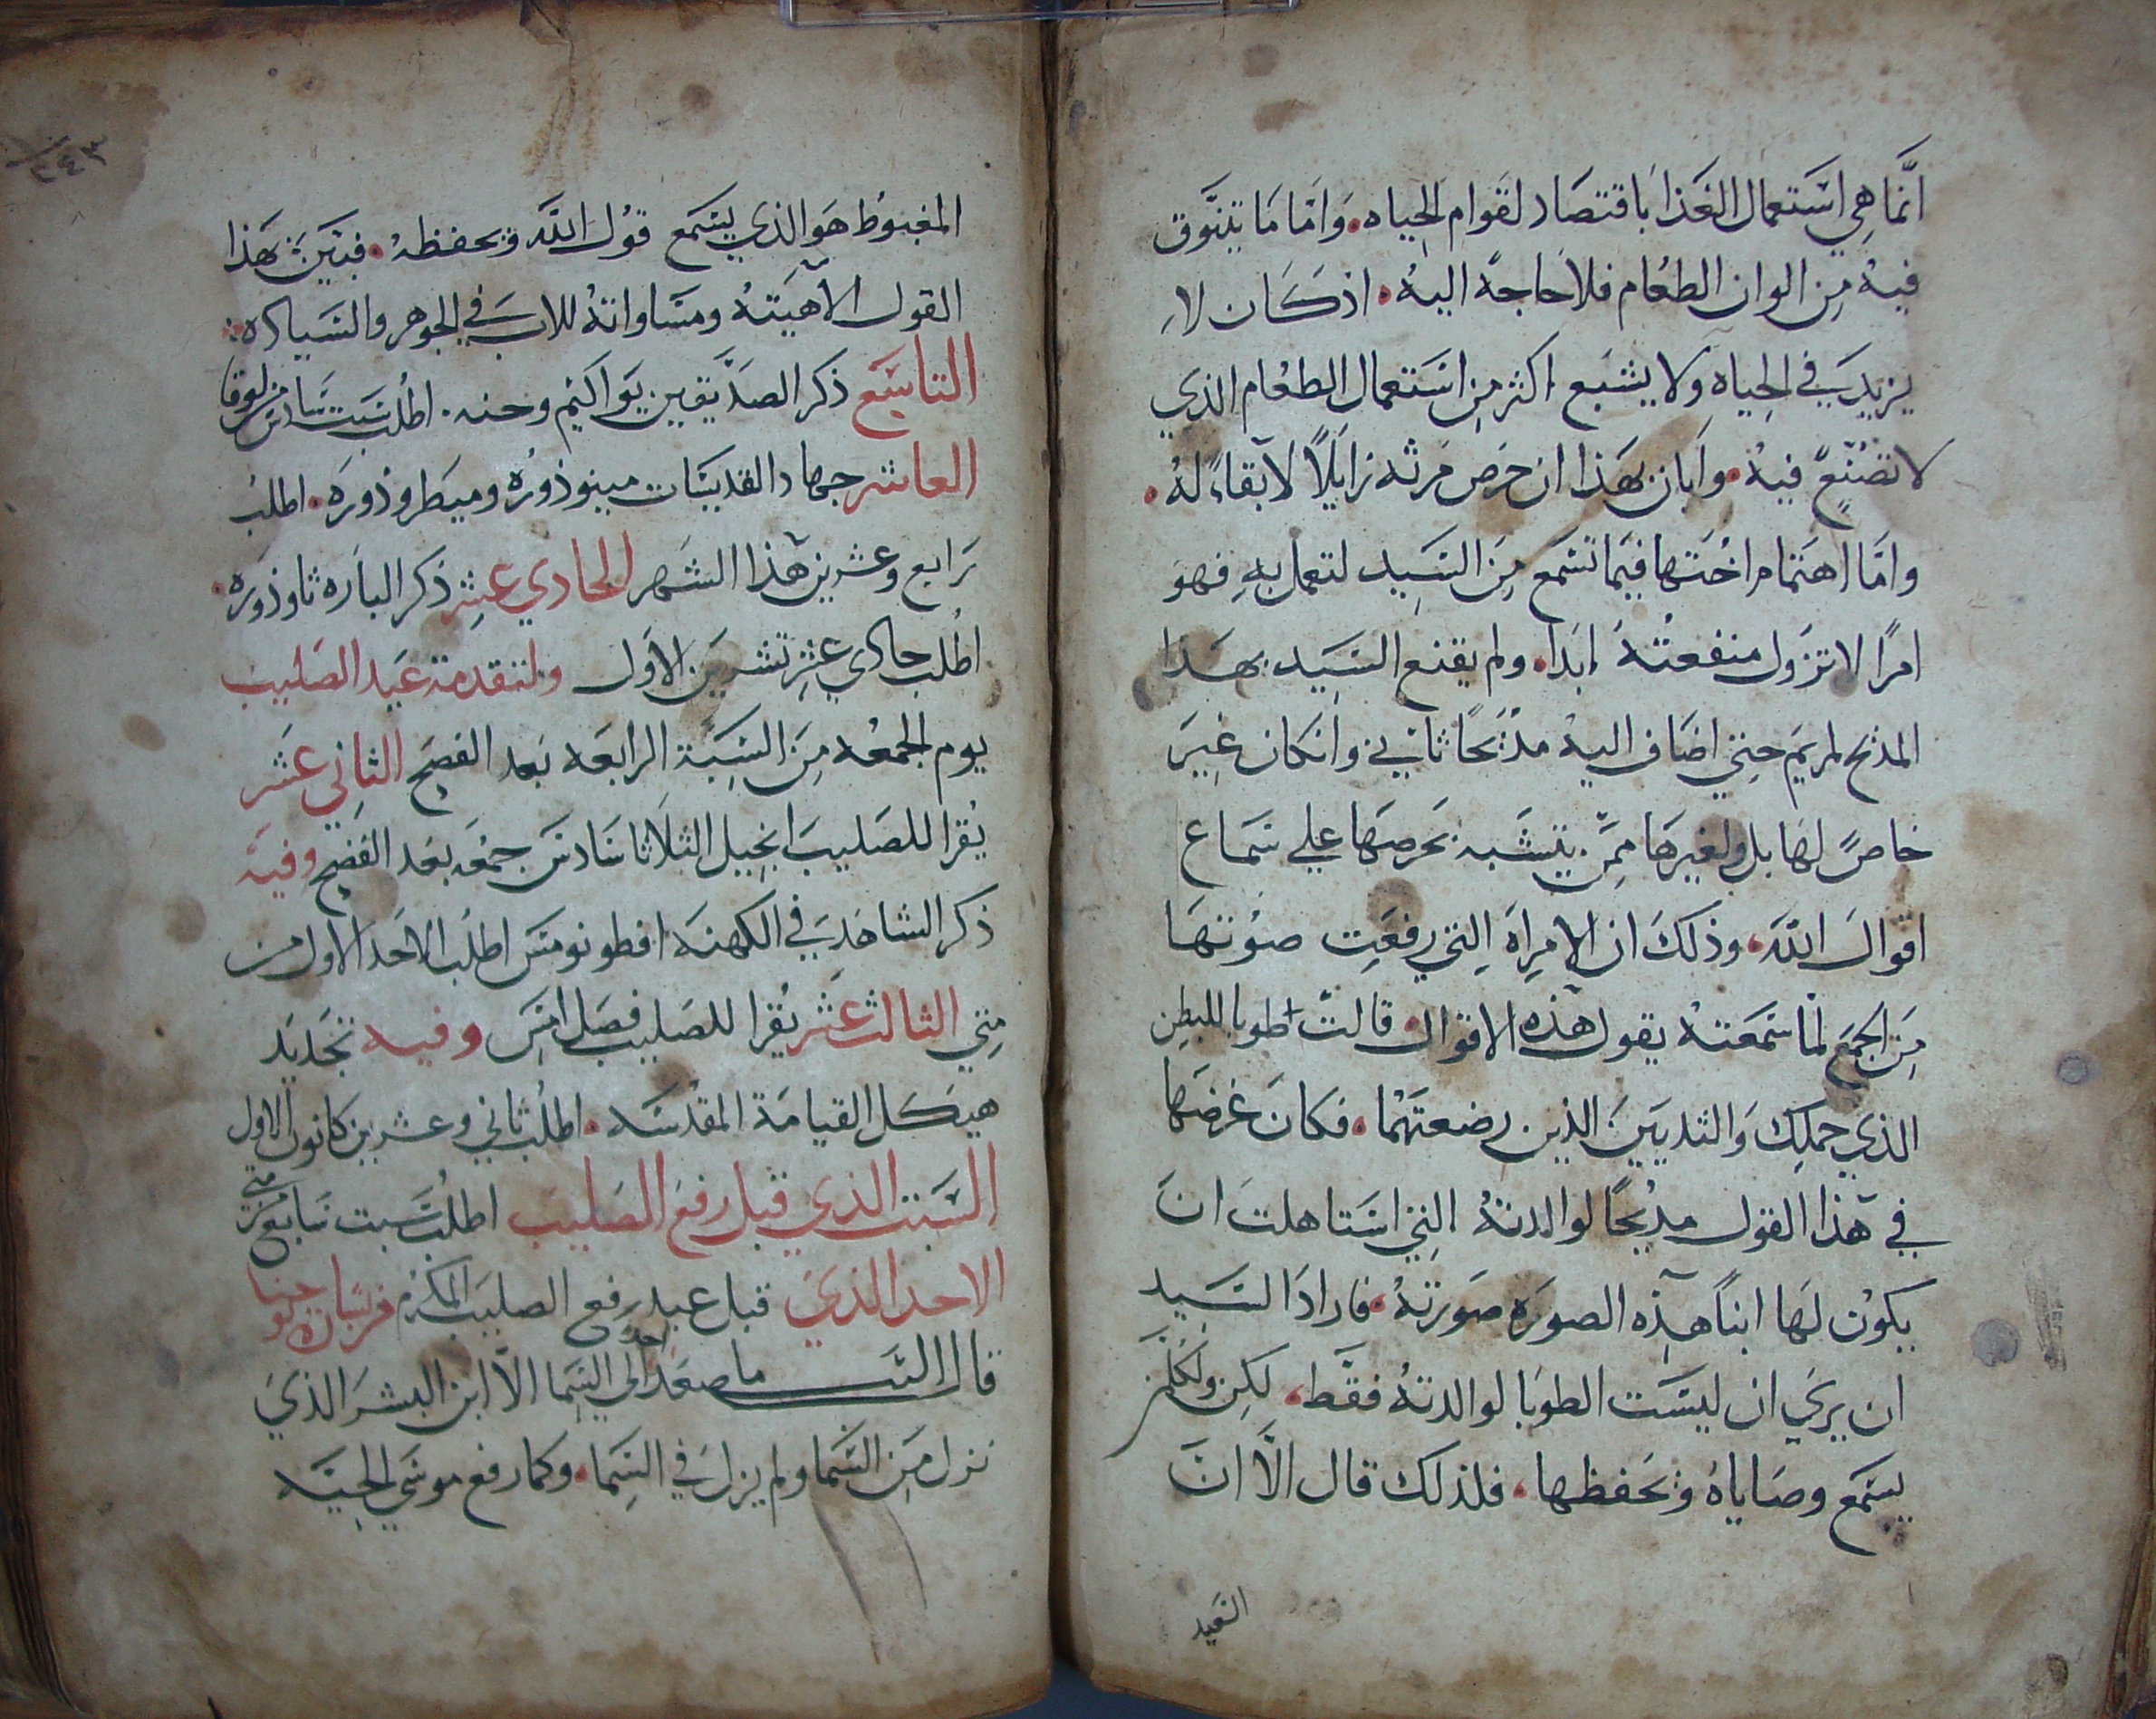 انما هي استعمال الغذا باقتصاد لقوام الحياه. واما ما يتنوق
فيه من الوان الطعام فلا حاجة اليه. اذ كان لا
يزيد في الحياه ولا يشبع اكثر من استعمال الطعام الذي
لا تصنع فيه. وابان بهذا ان حرص مرثه زايلا لا بقاء له.
واما اهتمام اختها فيما تسمع من السيد لتعمل به فهو
امرا لا تزول منفعته ابدا. ولم يقنع السيد بهذا
المدح لمريم حتي اضاف اليه مدحا ثاني وانكان غير
خاص لها بل ولغيرها ممن يتشبه بحرصها علي سماع
اقوال الله. وذلك ان الامراه التي رفعت صوتها
من الجمع لما سمعته يقول هذه الاقوال قالت طوبا للبطن
الذي حملك والثديين الذين رضعتهما. فكان غرضها
في هذا القول مديحا لوالدته التي استاهلت ان
يكون لها ابنا هذه الصوره صورته. فاراد السيد
ان يري ان ليست الطوبا لوالدته فقط. لكن ولكلمن
يسمع وصاياه ويحفظها. فلذلك قال الا ان
السعيد
٢٤٣
المغبوط هو الذي يسمع قول الله ويحفظه. فبين بهذا
القول الاهيته ومساواته للاب في الجوهر والسياده
التاسع ذكر الصديقين يواكيم وحنه. اطلب سبت سادس من لوقا
العاشر جهاد القديسات مينوذوره وميطروذوره. اطلب
رابع وعشرين هذا الشهر الحادي عشر ذكر الباره ثاوذوره.
اطلب حادي عشر تشرين الاول ولتقدمة عيد الصليب
يوم الجمعه من السبة الرابعه بعد الفصح الثاني عشر
يقرا للصليب انجيل الثلاثا سادس جمعه بعد الفصح وفيه
ذكر الشاهد في الكهنه افطونومس اطلب الاحد الاول من
متي الثالث عشر يقرا للصليب فصل امس وفيه تجديد
هيكل القيامة المقدسه. اطلب ثاني وعشرين كانون الاول
السبت الذي قبل رفع الصليب اطلب سبت سابع من متي
الاحد الذي قبل عيد رفع الصليب المكرم
قال الس ما صعد احد الي السما الا ابن البشر الذي
نزل من السما ولم يزل في السما. وكما رفع موسي الحيه